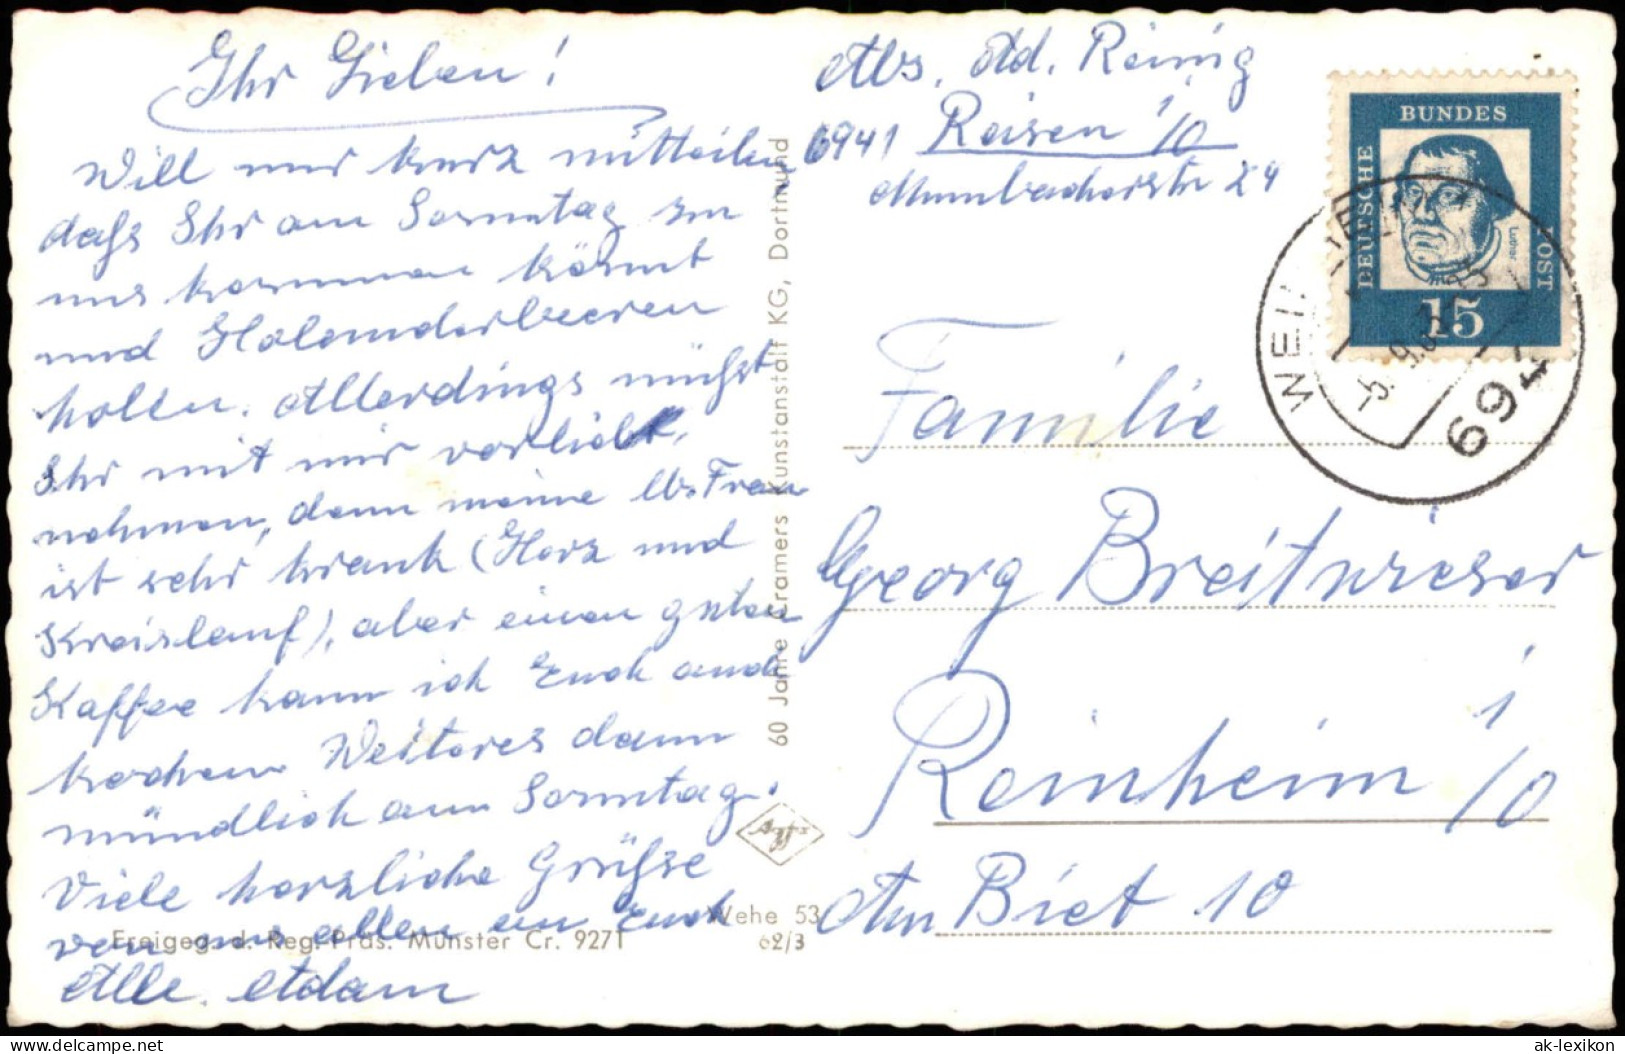 Ihr Lieben!
Will nur kurz mitteilen
dass Ihr am Sonntag zu
uns kommen könnt
und Holunderbeeren
holen. Allerdings müsst
Ihr mit mir vorlieb
nehmen, denn meine lb. Frau
ist sehr krank (Herz und
Kreislauf), aber einen guten
Kaffee kann ich Euch auch
kochen. Weiteres dann
mündlich am Sonntag.
Viele herzliche Grüsse
von uns allen an Euch
Alle. Adam
Freigeg. d. Reg. Präs. Münster Cr. 9271
Wehe 53
62/3
60 Jahre Cramers Kunstanstalt KG, Dortmund
Agfa
Abs. Ad. Reinig
6941 Reisen i/O
Mumbacherstr 24
DEUSCHE
BUNDES
POST
Luther
15
WEIN
6943
Familie
Georg Breitwieser
Reinheim i/O
Am Biet 10
ak-lexikon
delcampe.net